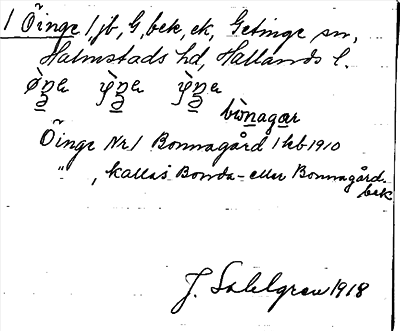 1 Öinge 1, jb, G, bek, ek, Getinge sn,
Halmstads hd, Hallands l.
Öinge Nr 1 Bonnagård 1 hb 1910
" , kallas Bonda- eller Bonnagård.
bek
J. Sahlgren 1918